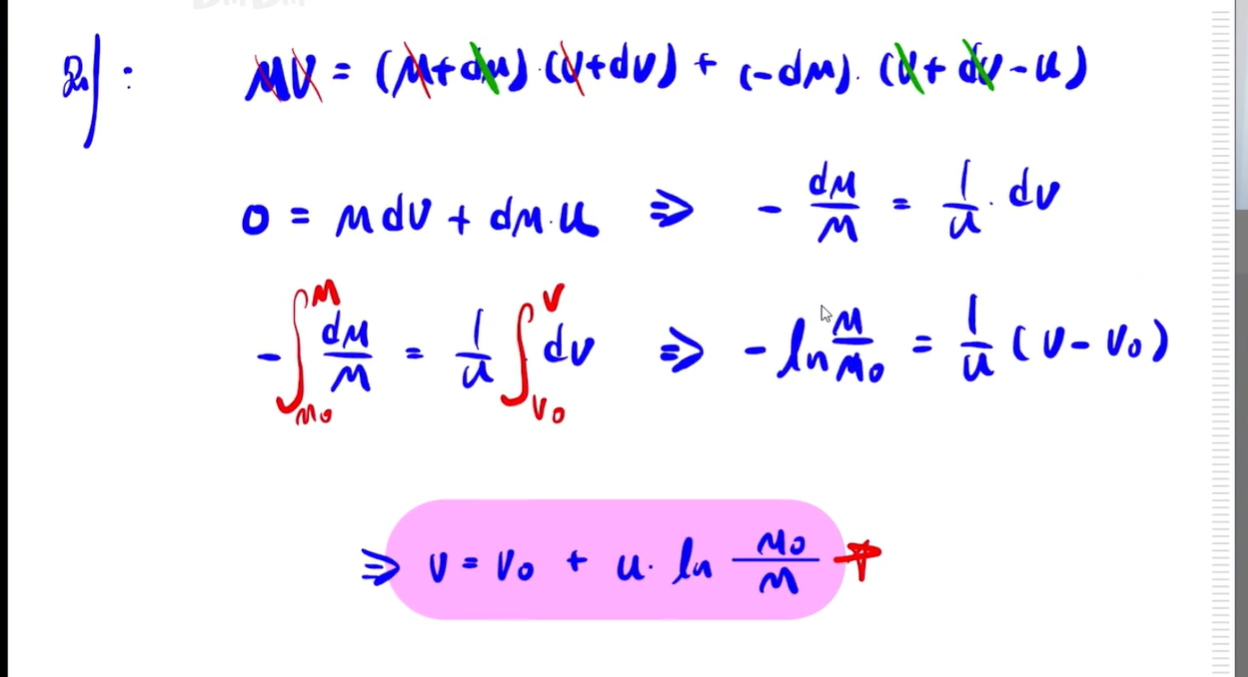 : MV = (M+dM)·(V+dV) + (-dM)·(V+dV-u)
0 = MdV + dM·u ⇒ - dM/M = 1/u · dV
-∫_{M0}^{M} dM/M = 1/u ∫_{V0}^{V} dV ⇒ - ln M/M0 = 1/u (V-V0)
⇒ V = V0 + u· ln M0/M